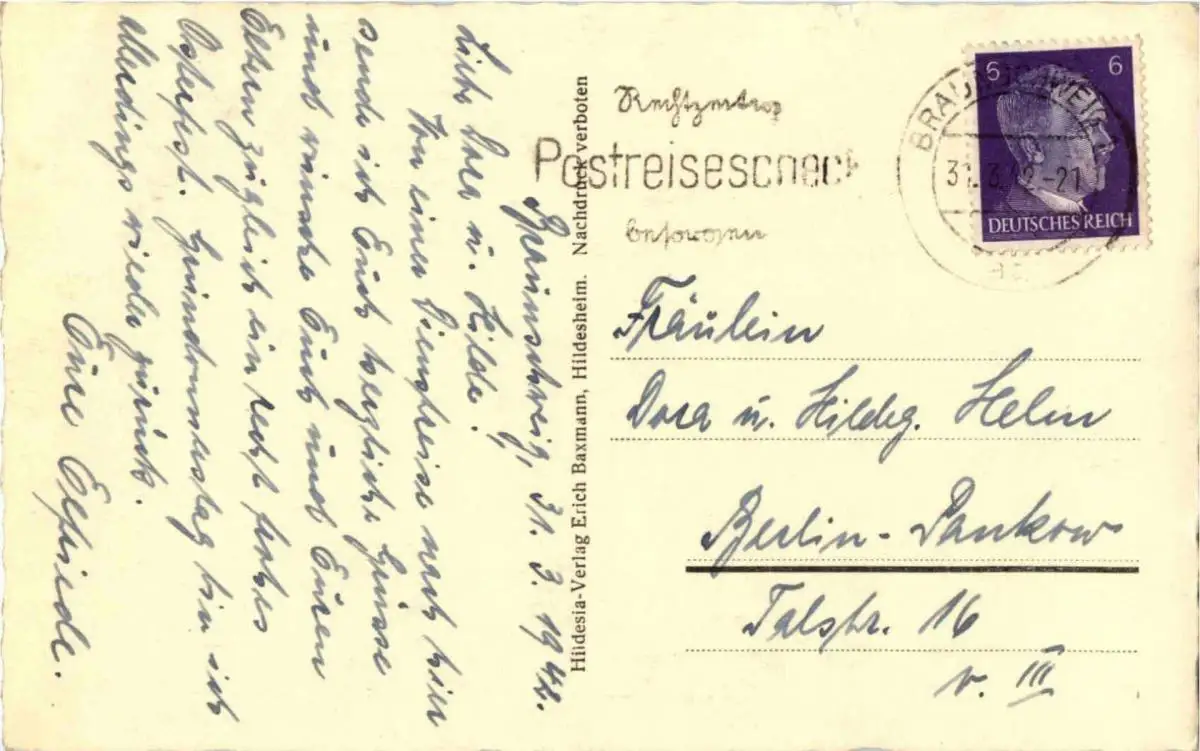 Braunschweig, 31. 3. 1942.
Liebe Dora u. Hilde!
Von einer Dienstreise nach hier
sende ich Euch herzliche Grüsse
und wünsche Euch und Euren
Eltern zugleich ein recht frohes
Osterfest. Gründonnerstag bin ich
allerdings wieder zurück.
Eure Elfriede.
Hildesia-Verlag Erich Baxmann, Hildesheim. Nachdruck verboten
Rechtzeitig
Postreisescheck
besorgen
BRAUNSCHWEIG
31.3.42-21
6 6
DEUTSCHES REICH
Fräulein
Dora u. Hildeg. Helm
Berlin-Pankow
Talstr. 16
v. III